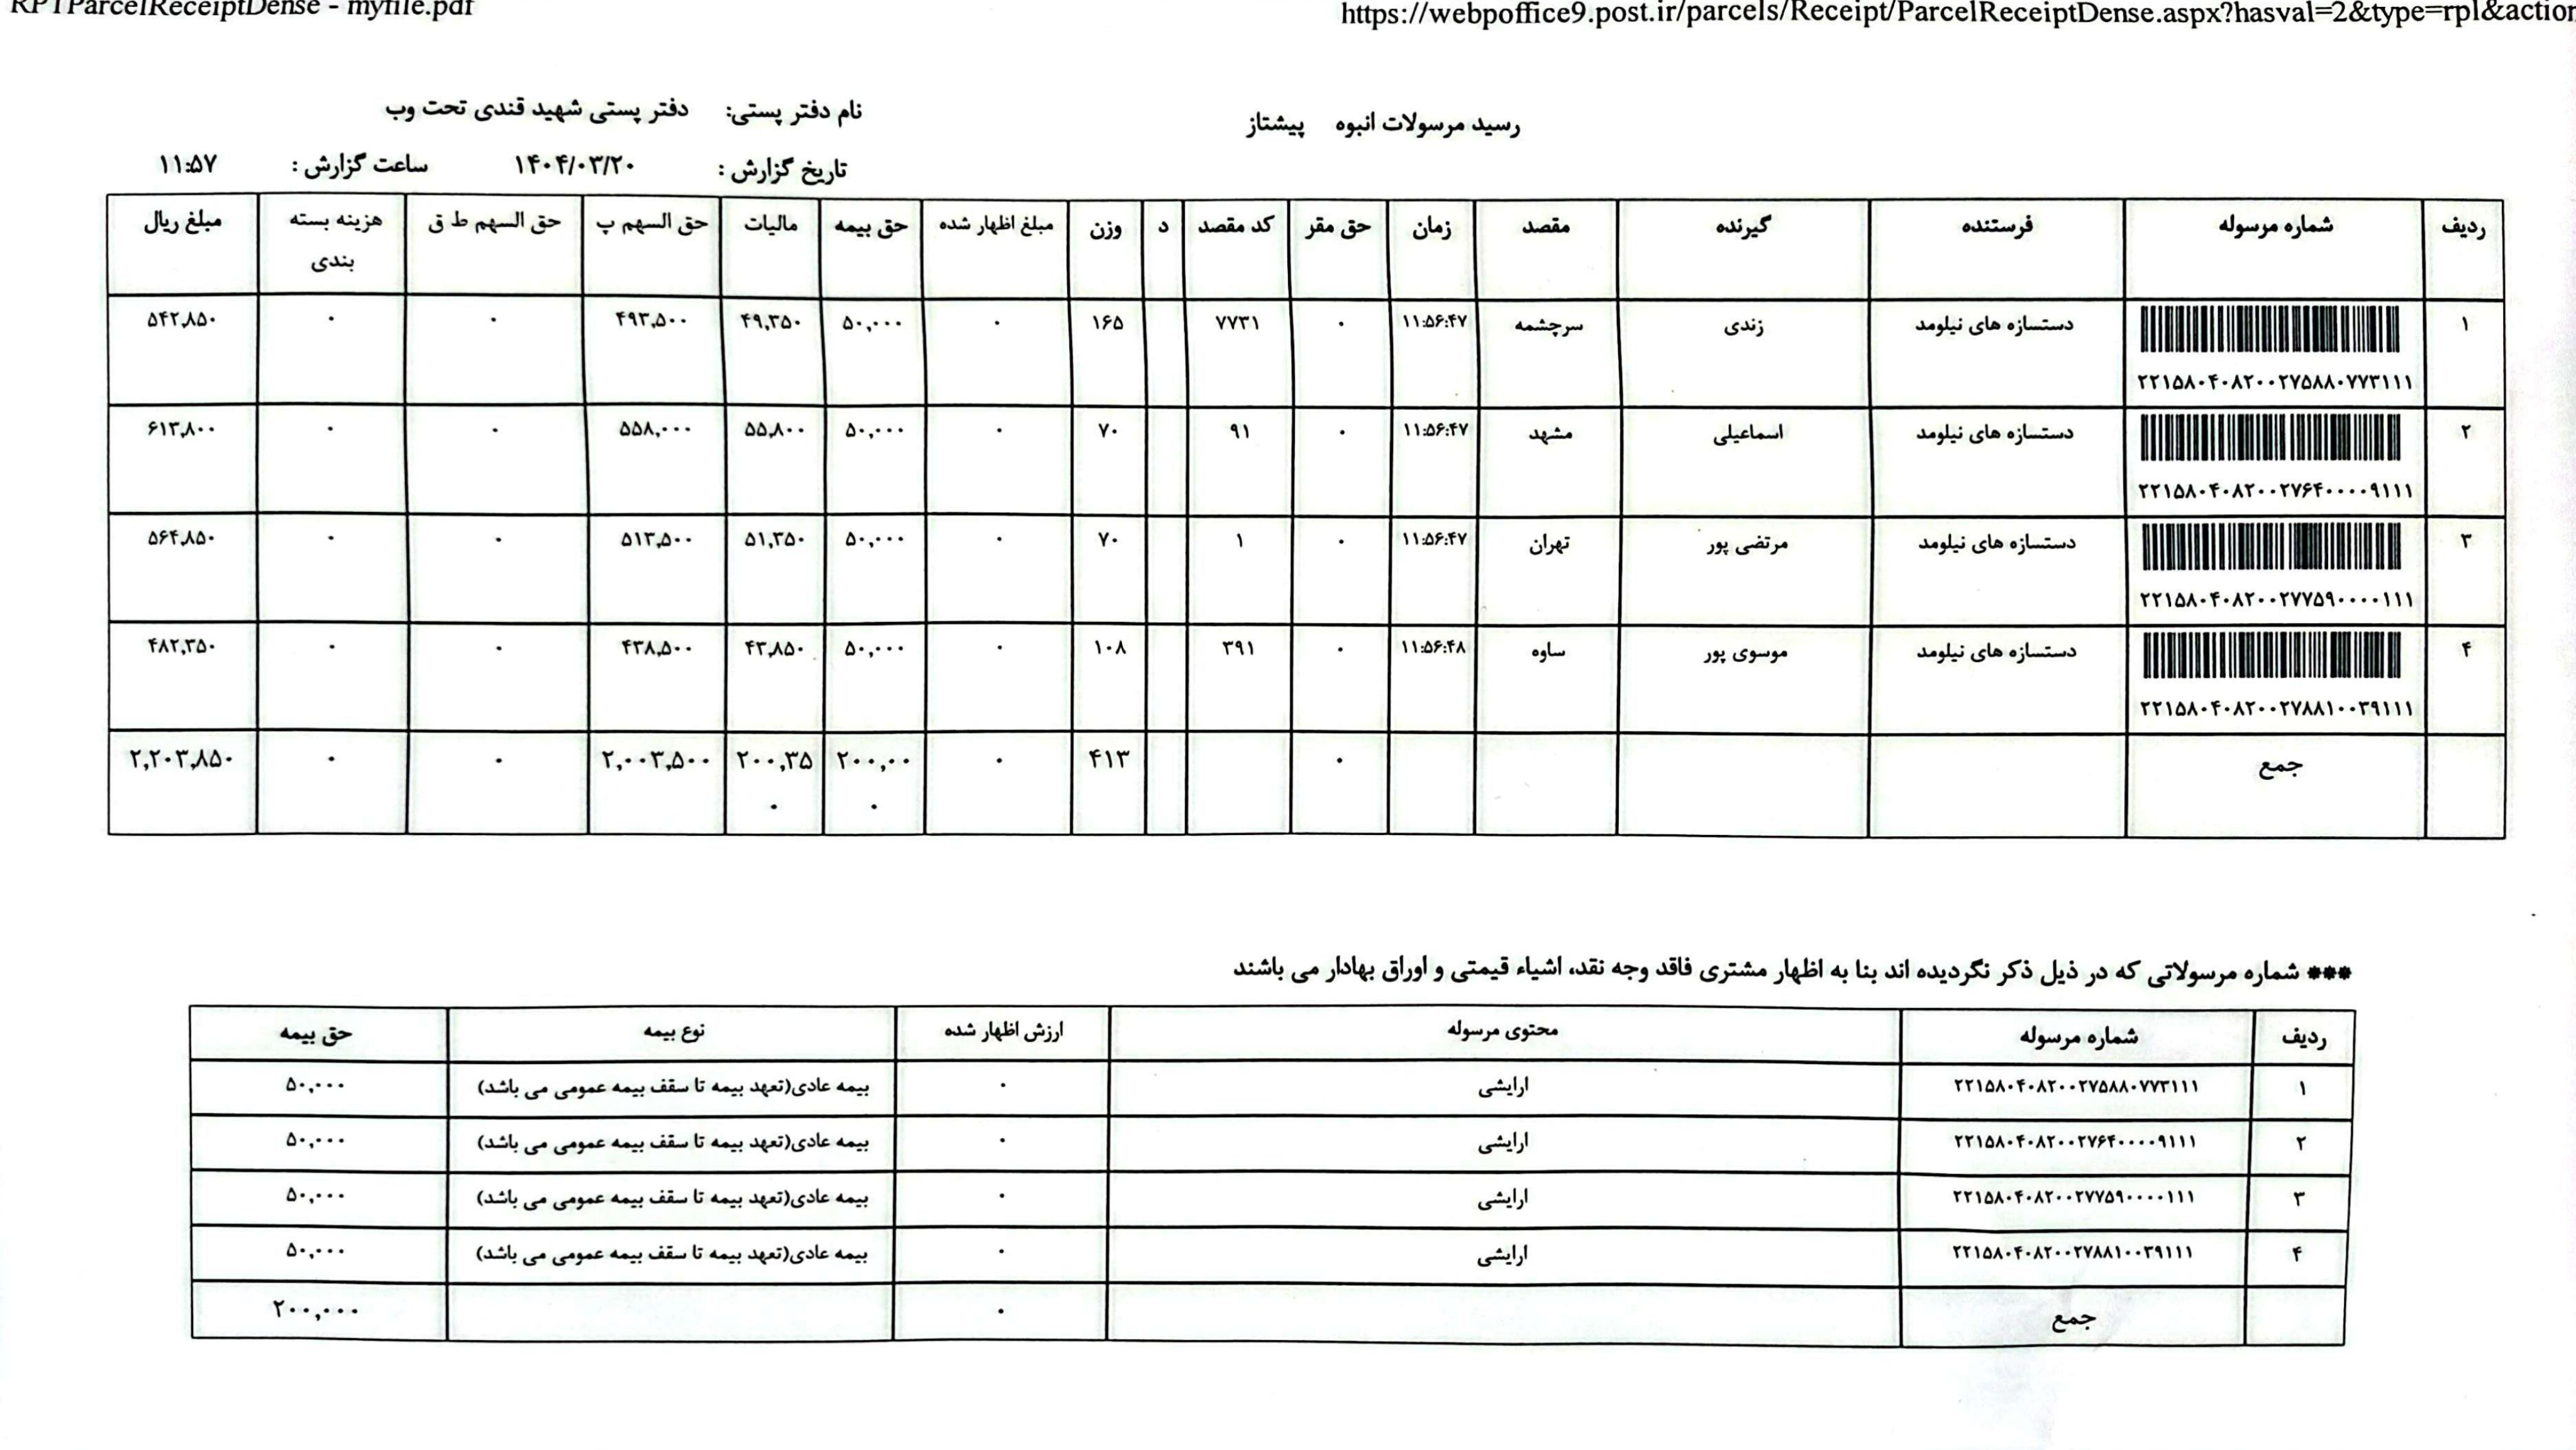 RPTParcelReceiptDense - myfile.pdf
https://webpoffice9.post.ir/parcels/Receipt/ParcelReceiptDense.aspx?hasval=2&type=rpl&action
رسید مرسولات انبوه پیشتاز
نام دفتر پستی: دفتر پستی شهید قندی تحت وب
تاریخ گزارش : ۱۴۰۴/۰۳/۲۰ ساعت گزارش : ۱۱:۵۷
ردیف شماره مرسوله فرستنده گیرنده مقصد زمان حق مقر کد مقصد د وزن مبلغ اظهار شده حق بیمه مالیات حق السهم پ حق السهم ط ق هزینه بسته بندی مبلغ ریال
۱ ۲۲۱۵۸۰۴۰۸۲۰۰۲۷۵۸۸۰۷۷۳۱۱۱ دستسازه های نیلومد زندی سرچشمه ۱۱:۵۶:۴۷ ۰ ۷۷۳۱ ۱۶۵ ۰ ۵۰,۰۰۰ ۴۹,۳۵۰ ۴۹۳,۵۰۰ ۰ ۰ ۵۴۲,۸۵۰
۲ ۲۲۱۵۸۰۴۰۸۲۰۰۲۷۶۴۰۰۰۰۹۱۱۱ دستسازه های نیلومد اسماعیلی مشهد ۱۱:۵۶:۴۷ ۰ ۹۱ ۷۰ ۰ ۵۰,۰۰۰ ۵۵,۸۰۰ ۵۵۸,۰۰۰ ۰ ۰ ۶۱۳,۸۰۰
۳ ۲۲۱۵۸۰۴۰۸۲۰۰۲۷۷۵۹۰۰۰۰۱۱۱ دستسازه های نیلومد مرتضی پور تهران ۱۱:۵۶:۴۷ ۰ ۱ ۷۰ ۰ ۵۰,۰۰۰ ۵۱,۳۵۰ ۵۱۳,۵۰۰ ۰ ۰ ۵۶۴,۸۵۰
۴ ۲۲۱۵۸۰۴۰۸۲۰۰۲۷۸۸۱۰۰۳۹۱۱۱ دستسازه های نیلومد موسوی پور ساوه ۱۱:۵۶:۴۸ ۰ ۳۹۱ ۱۰۸ ۰ ۵۰,۰۰۰ ۴۳,۸۵۰ ۴۳۸,۵۰۰ ۰ ۰ ۴۸۲,۳۵۰
جمع ۰ ۴۱۳ ۰ ۲۰۰,۰۰۰ ۲۰۰,۳۵۰ ۲,۰۰۳,۵۰۰ ۰ ۰ ۲,۲۰۳,۸۵۰
*** شماره مرسولاتی که در ذیل ذکر نگردیده اند بنا به اظهار مشتری فاقد وجه نقد، اشیاء قیمتی و اوراق بهادار می باشند
ردیف شماره مرسوله محتوی مرسوله ارزش اظهار شده نوع بیمه حق بیمه
۱ ۲۲۱۵۸۰۴۰۸۲۰۰۲۷۵۸۸۰۷۷۳۱۱۱ ارایشی ۰ بیمه عادی(تعهد بیمه تا سقف بیمه عمومی می باشد) ۵۰,۰۰۰
۲ ۲۲۱۵۸۰۴۰۸۲۰۰۲۷۶۴۰۰۰۰۹۱۱۱ ارایشی ۰ بیمه عادی(تعهد بیمه تا سقف بیمه عمومی می باشد) ۵۰,۰۰۰
۳ ۲۲۱۵۸۰۴۰۸۲۰۰۲۷۷۵۹۰۰۰۰۱۱۱ ارایشی ۰ بیمه عادی(تعهد بیمه تا سقف بیمه عمومی می باشد) ۵۰,۰۰۰
۴ ۲۲۱۵۸۰۴۰۸۲۰۰۲۷۸۸۱۰۰۳۹۱۱۱ ارایشی ۰ بیمه عادی(تعهد بیمه تا سقف بیمه عمومی می باشد) ۵۰,۰۰۰
جمع ۰ ۲۰۰,۰۰۰